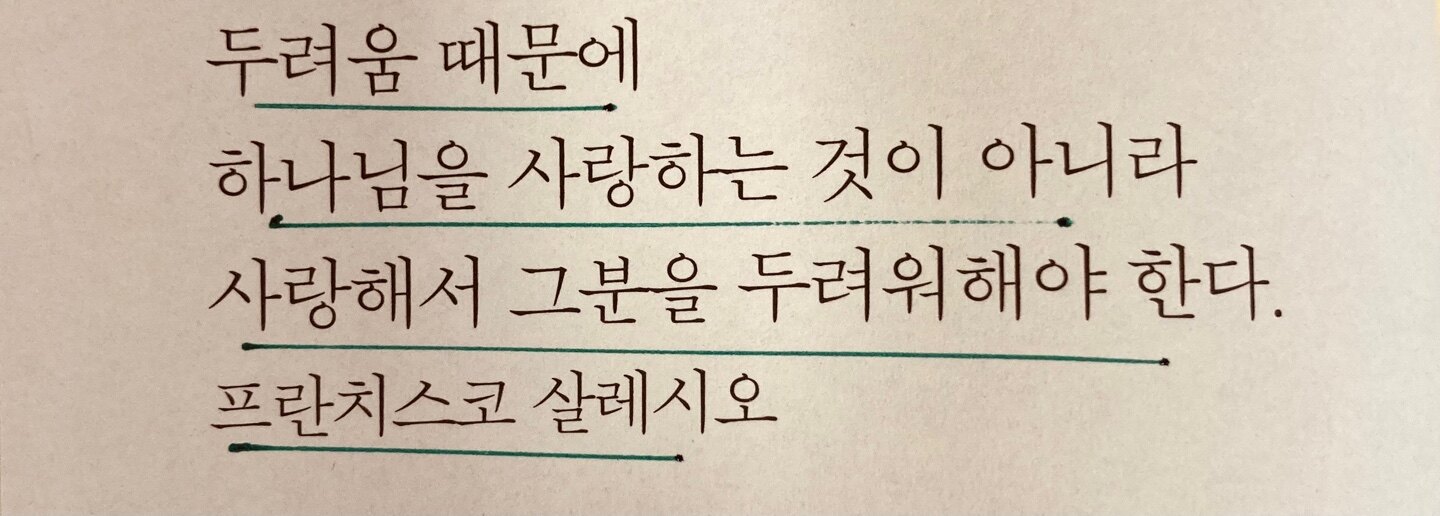 두려움 때문에
하나님을 사랑하는 것이 아니라
사랑해서 그분을 두려워해야 한다.
프란치스코 살레시오